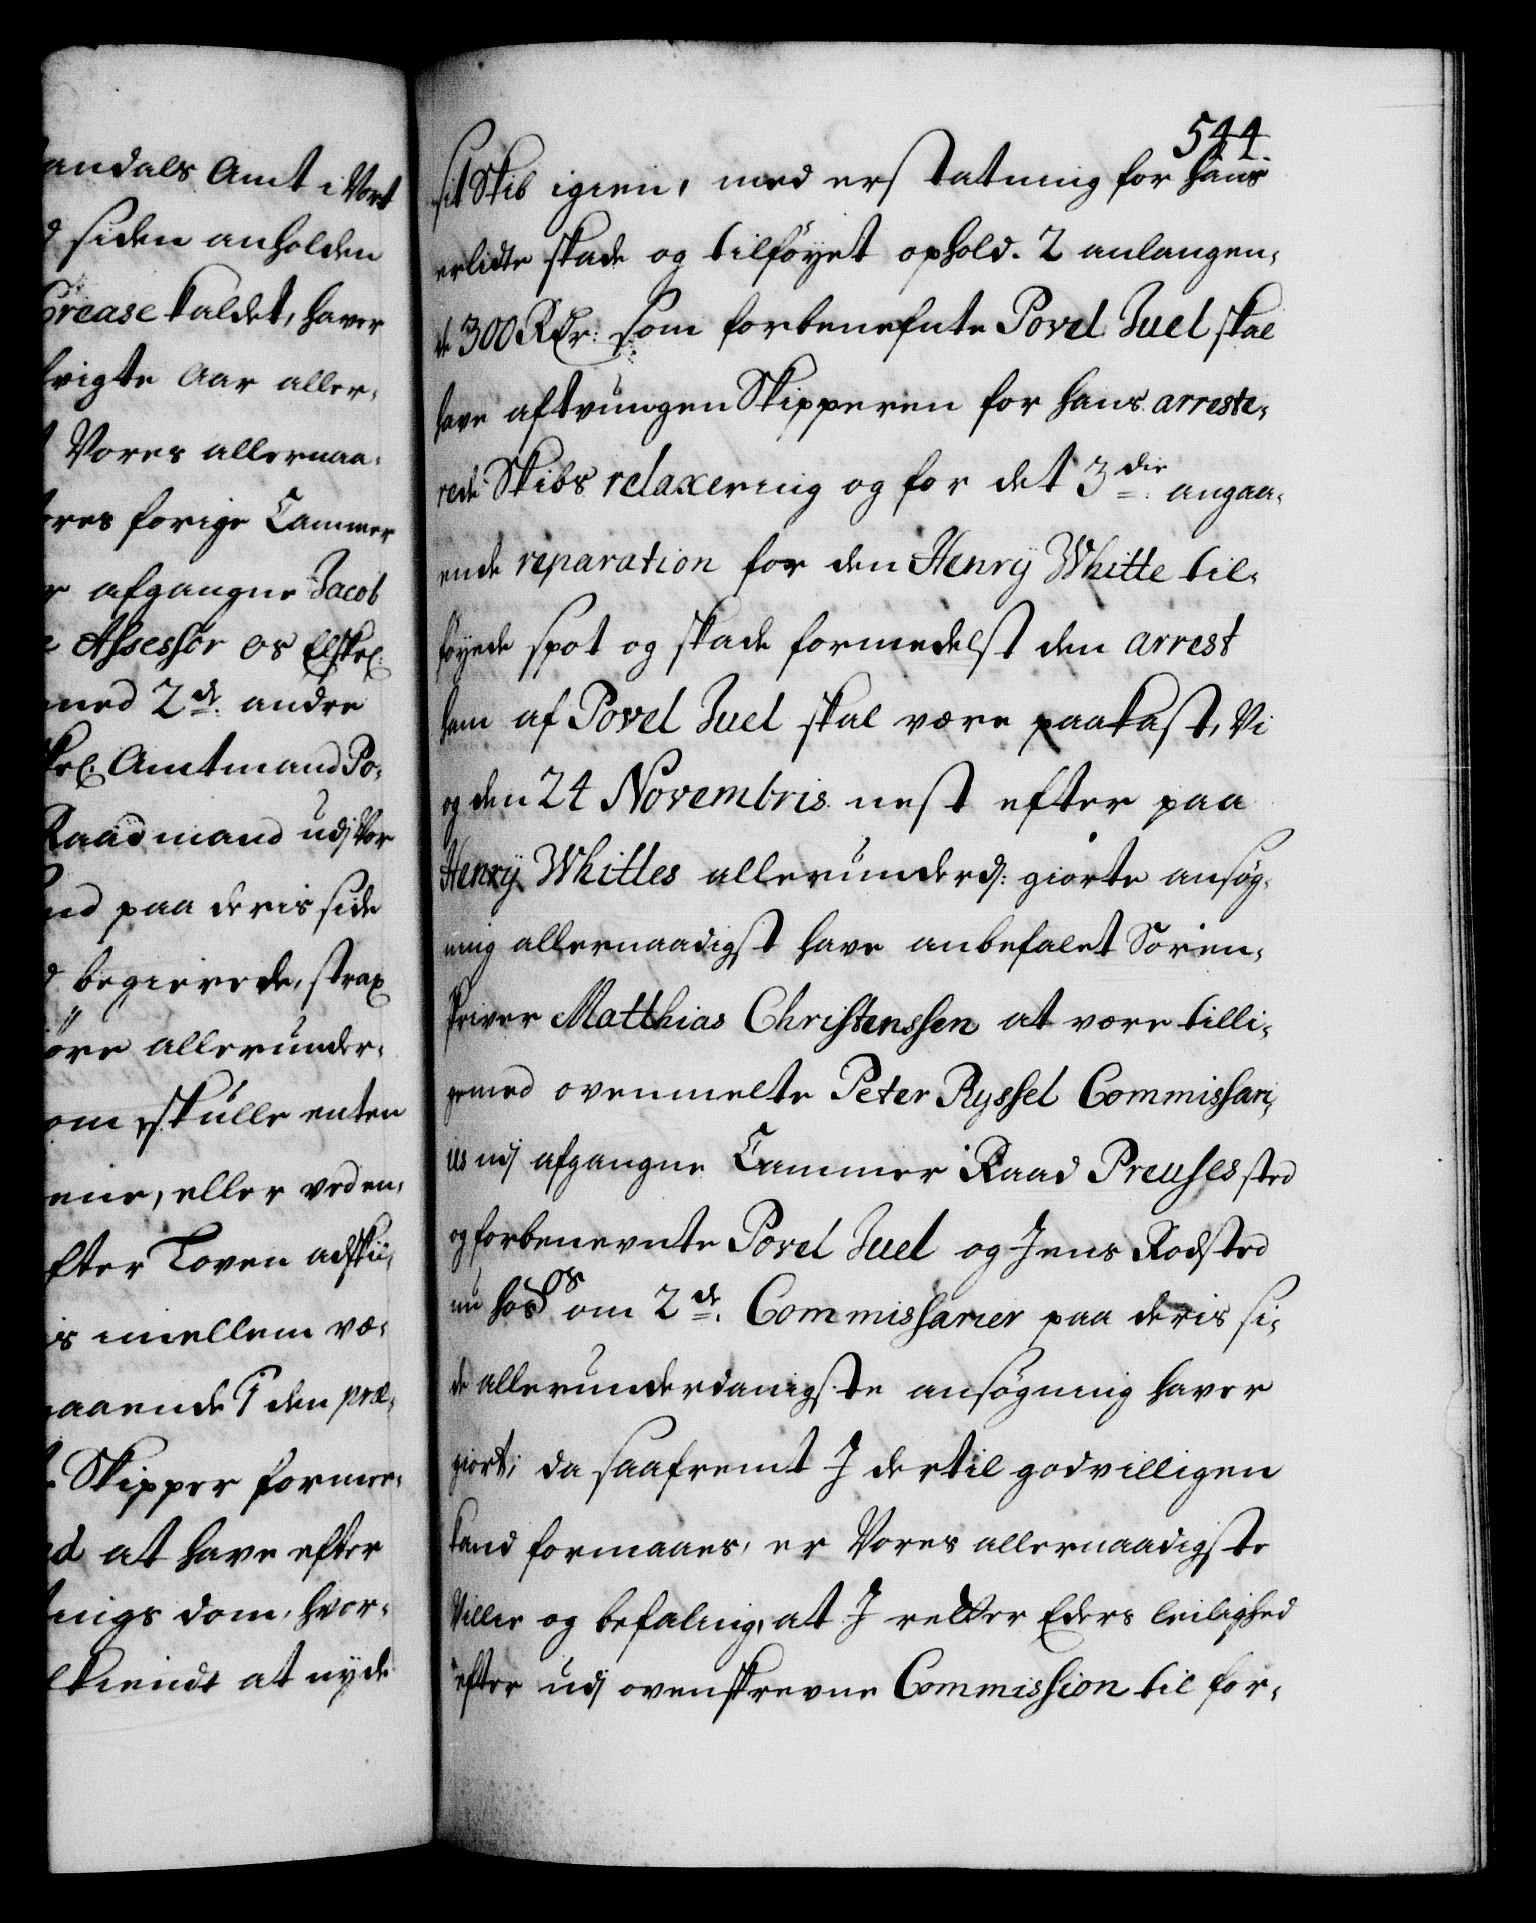 andals Amt i Vort
siden anholden
Crease kaldet, haver
Aar aller-
Vores allernaa-
ores forige Cammer
afgangne Jacob
Assessor os Elskel:
med 2de. andre
skel. Amtmand Po-
Raadmand udj
paa deris side
begierede, strax
giøre allerunder-
om skulle enten
ene, eller ved en
efter Loven adski-
imellem væ-
gaaende 1 den præ-
Skipper formee-
at have efter
tings dom, hvor-
at nyde
544.
sit Skib igien, med erstatning for hans
erlidte skade og tilføyet ophold. 2 anlangen-
de 300 Rdr: som forbenefnte Povel Juel skal
have aftvungen Skipperen for hans arreste-
rede Skibs relaxering og for det 3die angaa-
ende reparation for den Henry Whitte til-
føyede spot og skade formedelst den arrest
ham af Povel Juel skal være paakast, Vi
og den 24 Novembris nest efter paa
Henry Whittes allerunderd: giorte ansøg-
ning allernaadigst have anbefalet Soren-
skriver Matthias Christenssen at være tilli-
gemed ovenmelte Peter Ryssel Commissari-
us udj afgangne Cammer Raad Preuses sted
og forbenevnte Povel Juel og Jens Rodsted
nu hos os om 2de. Commissarier paa deris si-
de allerunderdanigste ansøgning haver
giort; da saafremt J dertil godvilligen
kand formaaes, er Vores allernaadigste
Villie og befaling, at J retter Eders leilighed
efter udj ovenskrevne Commission til for-